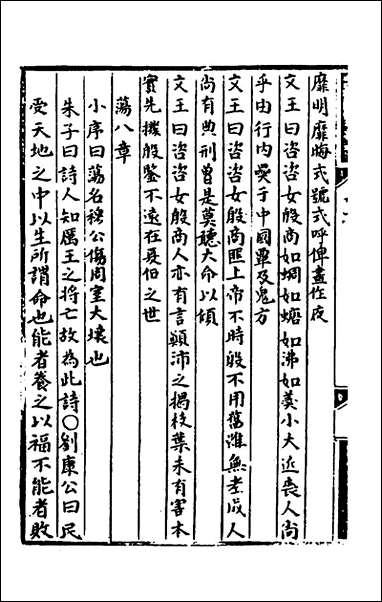 靡明靡晦式號式呼俾晝作夜
文王曰咨咨女殷商如蜩如螗如沸如羮小大近喪人尚
乎由行内奰于中國覃及鬼方
文王曰咨咨女殷商匪上帝不時殷不用舊雖無老成人
尚有典刑曽是莫聽大命以傾
文王曰咨咨女殷商人亦有言顚沛之揭枝葉未有害本
實先撥殷鑒不遠在夏后之世
蕩八章
小序曰蕩召穆公傷周室大壞也
朱子曰詩人知厲王之将亡故為此詩〇劉康公曰民
受天地之中以生所謂命也能者養之以福不能者敗